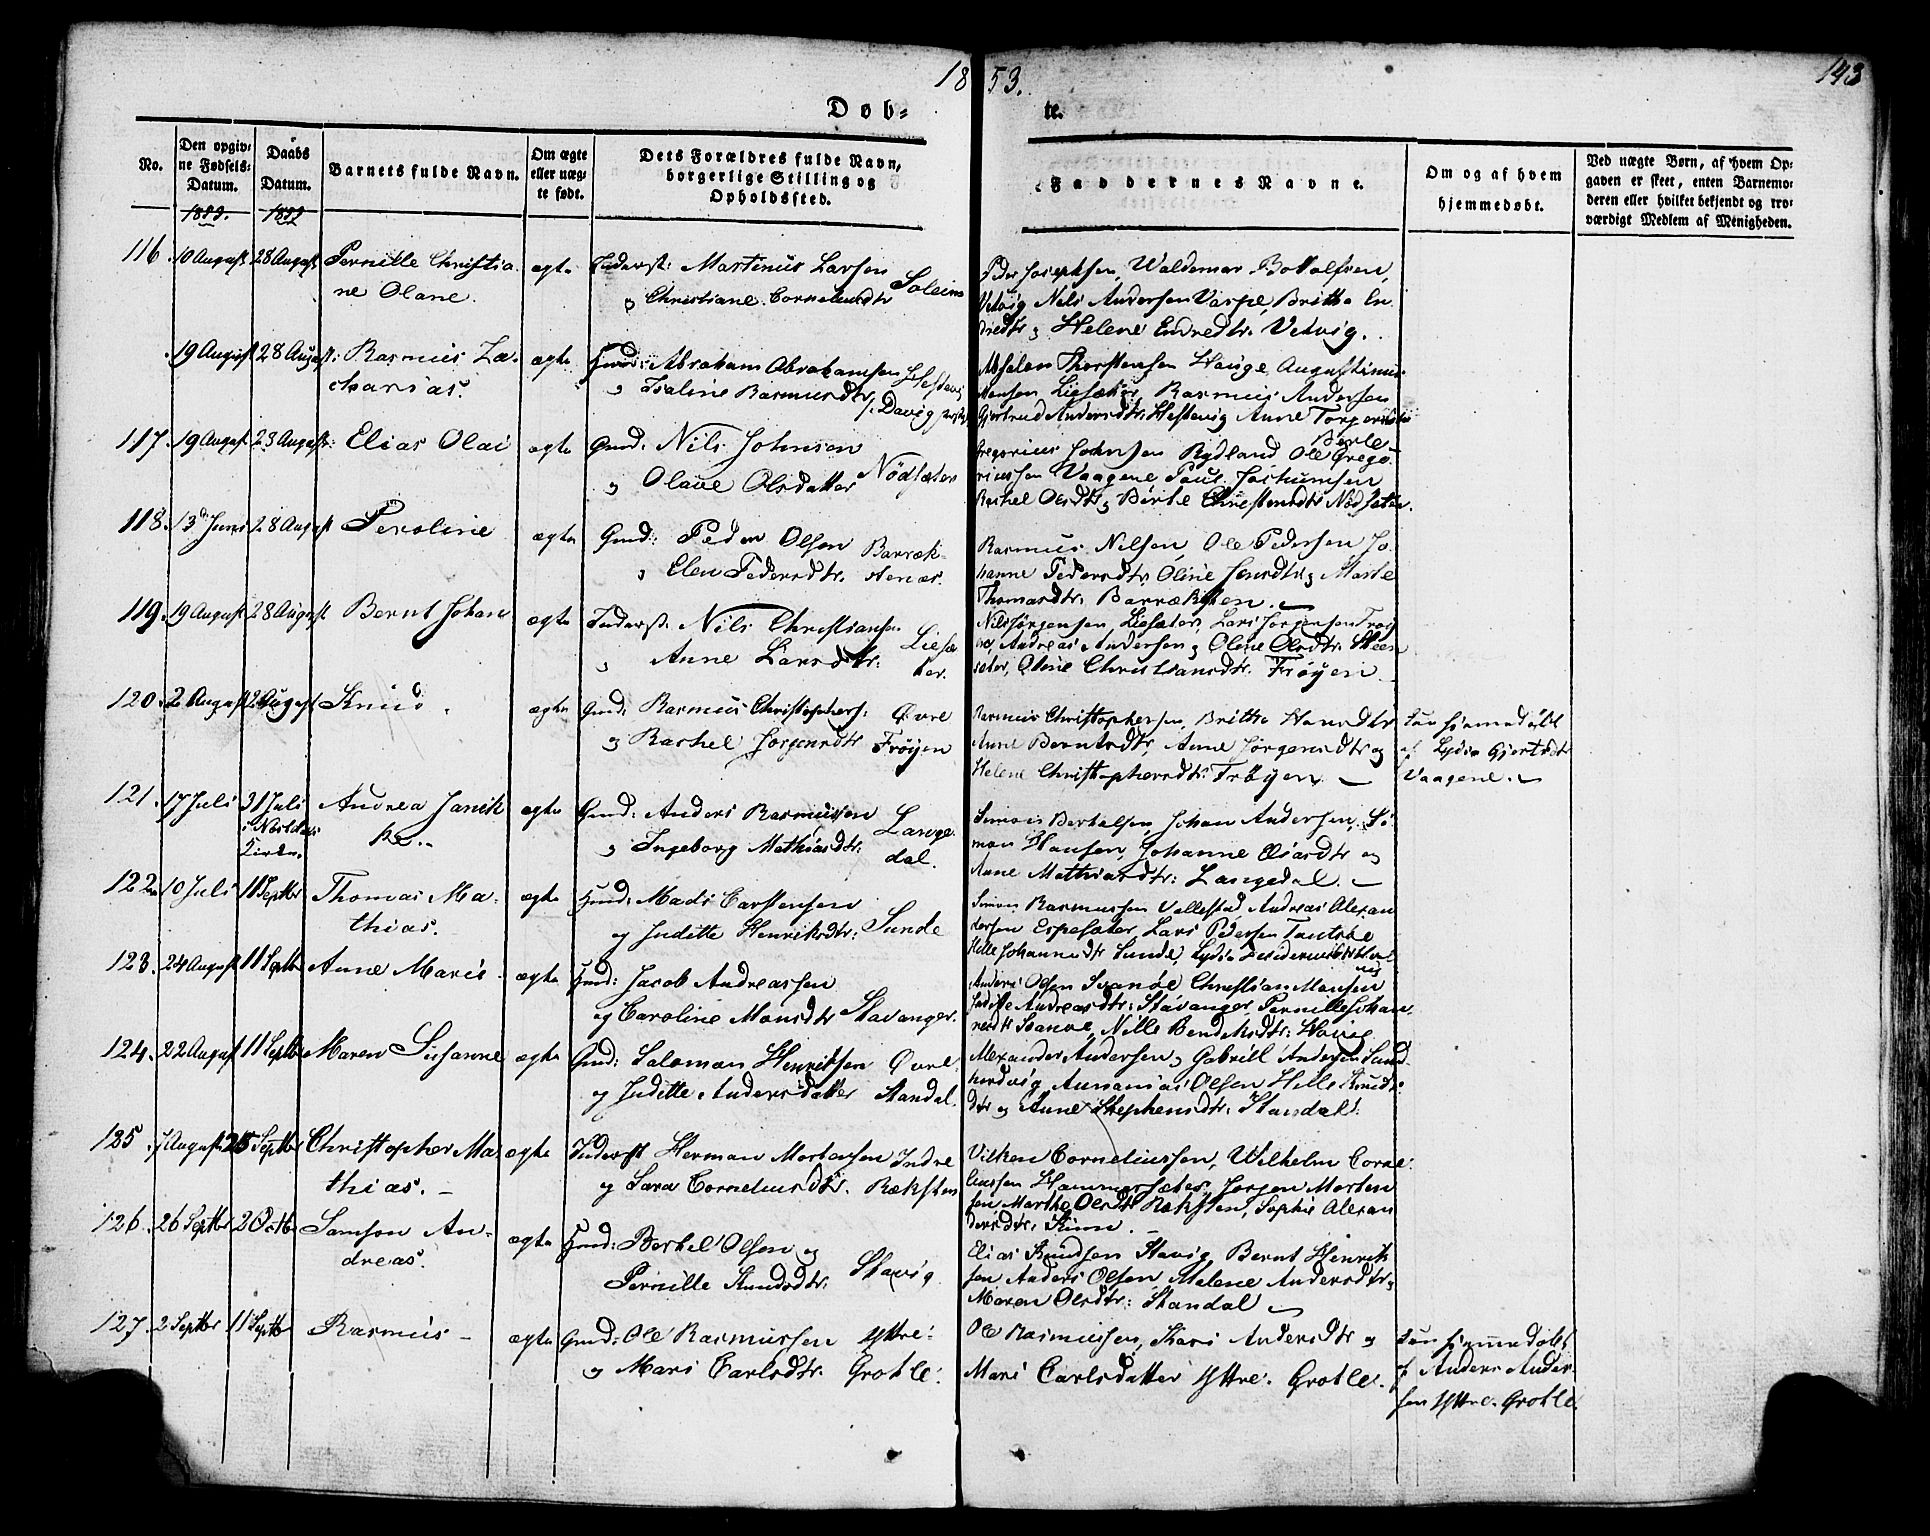 18 53. 143
Døb- te.
No.
Den opgiv-
ne Fødsels-
Datum.
1853.
Daabs
Datum.
1853
Barnets fulde Navn.
Om ægte
eller uæg-
te født.
Dets Forældres fulde Navn,
borgerlige Stilling og
Opholdssted.
Faddernes Navne.
Om og af hvem
hjemmedøbt.
Ved uægte Børn, af hvem Op-
gaven er skeet, enten Barnemo-
deren eller hvilket bekjendt og tro-
værdigt Medlem af Menigheden.
116 10 August 28 August Pernille Christia- ægte Inderst: Martinus Larsen Soleim
ne Olane. og Christiane Corneliusdtr
Peder Josephsen, Waldemar Botolfsen,
Vetvig Nils Andersen Varpe, Britha En-
dredtr og Helene Endredtr. Vetvig.
19 August 28 August: Rasmus Za- ægte Gmd: Abraham Abrahamsen Hestevig
charias. og Isaline Rasmusdtr / Davig
Absalon Thorstensen Hauge Augustinus
Hansen Liesæter, Rasmus Andersen
Gjertrud Andersdtr Hestevig Anne Torgersdtr
Berle
117. 19 August 23 August: Elias Olai ægte Gmd: Nils Johnson
og Olave Olsdatter Nødsæter
Gregorius Johnsen Rydland Ole Grego-
riussen Vaagene Paul Jochumsen
Rachel Olsdtr og Birte Christensdtr Nødsæter.
118. 13de Juni 28 August Peroline ægte Gmd: Peder Olsen Barræk-
og Elen Pedersdtr. stenæs.
Rasmus Nilsen, Ole Pedersen Jo-
hanne Pedersdtr Oline Jensdtr og Marte
Thomasdtr. Barræksten.
119. 19 August 28 August Bernt Johan ægte Inderst: Nils Christiansen Liesæ-
og Anne Larsdtr: ter.
Nils Jørgensen, Liesæter, Lars Jørgensen Frøy-
en, Andreas Andersen og Olene Olsdtr. Steen-
sæter, Oline Christiansdtr. Frøyen.
120. 2 August 2 August Knud ægte Gmd: Rasmus Christophers: Øvre
og Rachel Jørgensdtr Frøyen
Rasmus Christophersen, Britha Hansdtr
Anne Berntsdtr, Anne Jørgensdtr og
Helene Christophersdtr: Frøyen.
Kun hjemmedøbt
af Lydia Gjertsdtr
Vaagene.
121. 17 Juli 31 Juli Andrea Janik- ægte Gmd: Anders Rasmussen Lange-
i Kirken. ke. og Ingeborg Mathiasdtr: dal.
Simon Berthelsen, Johan Andersen, Si-
mon Hansen, Johanne Eliasdtr og
Anne Mathiasdtr: Langedal.
122. 10 Juli 11 Septbr Thomas Ma- ægte Gmd: Mads Carstensen
thias. og Juditte Henriksdtr: Sunde
Simon Rasmussen Vallestad, Andreas Alexan-
dersen Espesæter, Lars Pedersen Tautske
Hille Johannesdtr Sunde, Lydia
123. 24 August 11 Septbr Anne Marie ægte Gmd: Jacob Andreassen
og Caroline Monsdtr Stavanger.
Anders Olsen Svanøe Christian Monsen
Juditte Andreasdtr: Stavanger, Pernille Johan-
nesdtr Svanøe, Nille Bendiktsdtr: Hovig
124. 22 August 11 Septbr Maren Susanne ægte Gmd: Salomon Henriksen Øvre
og Juditte Andersdatter Standal.
Alexander Andersen og Gabriel Andersen Sand-
hordvig Annanias Olsen Hille Knuds-
dtr og Anne Stephensdtr: Standal:
125. 7 August 25 Septbr Christopher Ma- ægte Inderst Herman Mortensen Indre
thias. og Sara Corneliusdtr. Ræksten
Vilken Corneliussen, Wilhelm Corne-
liussen Hammersæter, Jørgen Morten-
sen, Martha Olsdtr Ræksten, Sophie Alexan-
dersdtr: Kinn.
126. 26 Septbr 2 Octbr Samson An- ægte Gmd: Berthel Olsen og
dreas. Pernille Knudsdtr. Stavig
Elias Knudsen Stavig, Bernt Henrik-
sen, Anders Olsen, Malene Andersdtr og
Maren Olsdtr: Standal
127. 2 Septbr 11 Septbr Rasmus ægte Gmd: Ole Rasmussen Yttre-
og Mari Carlsdtr. Grotle.
Ole Rasmussen, Kari Andersdtr og
Mari Carlsdatter Yttre-Grotle.
Kun hjemmedøbt
af Anders Ander-
sen Yttre-Grotle.